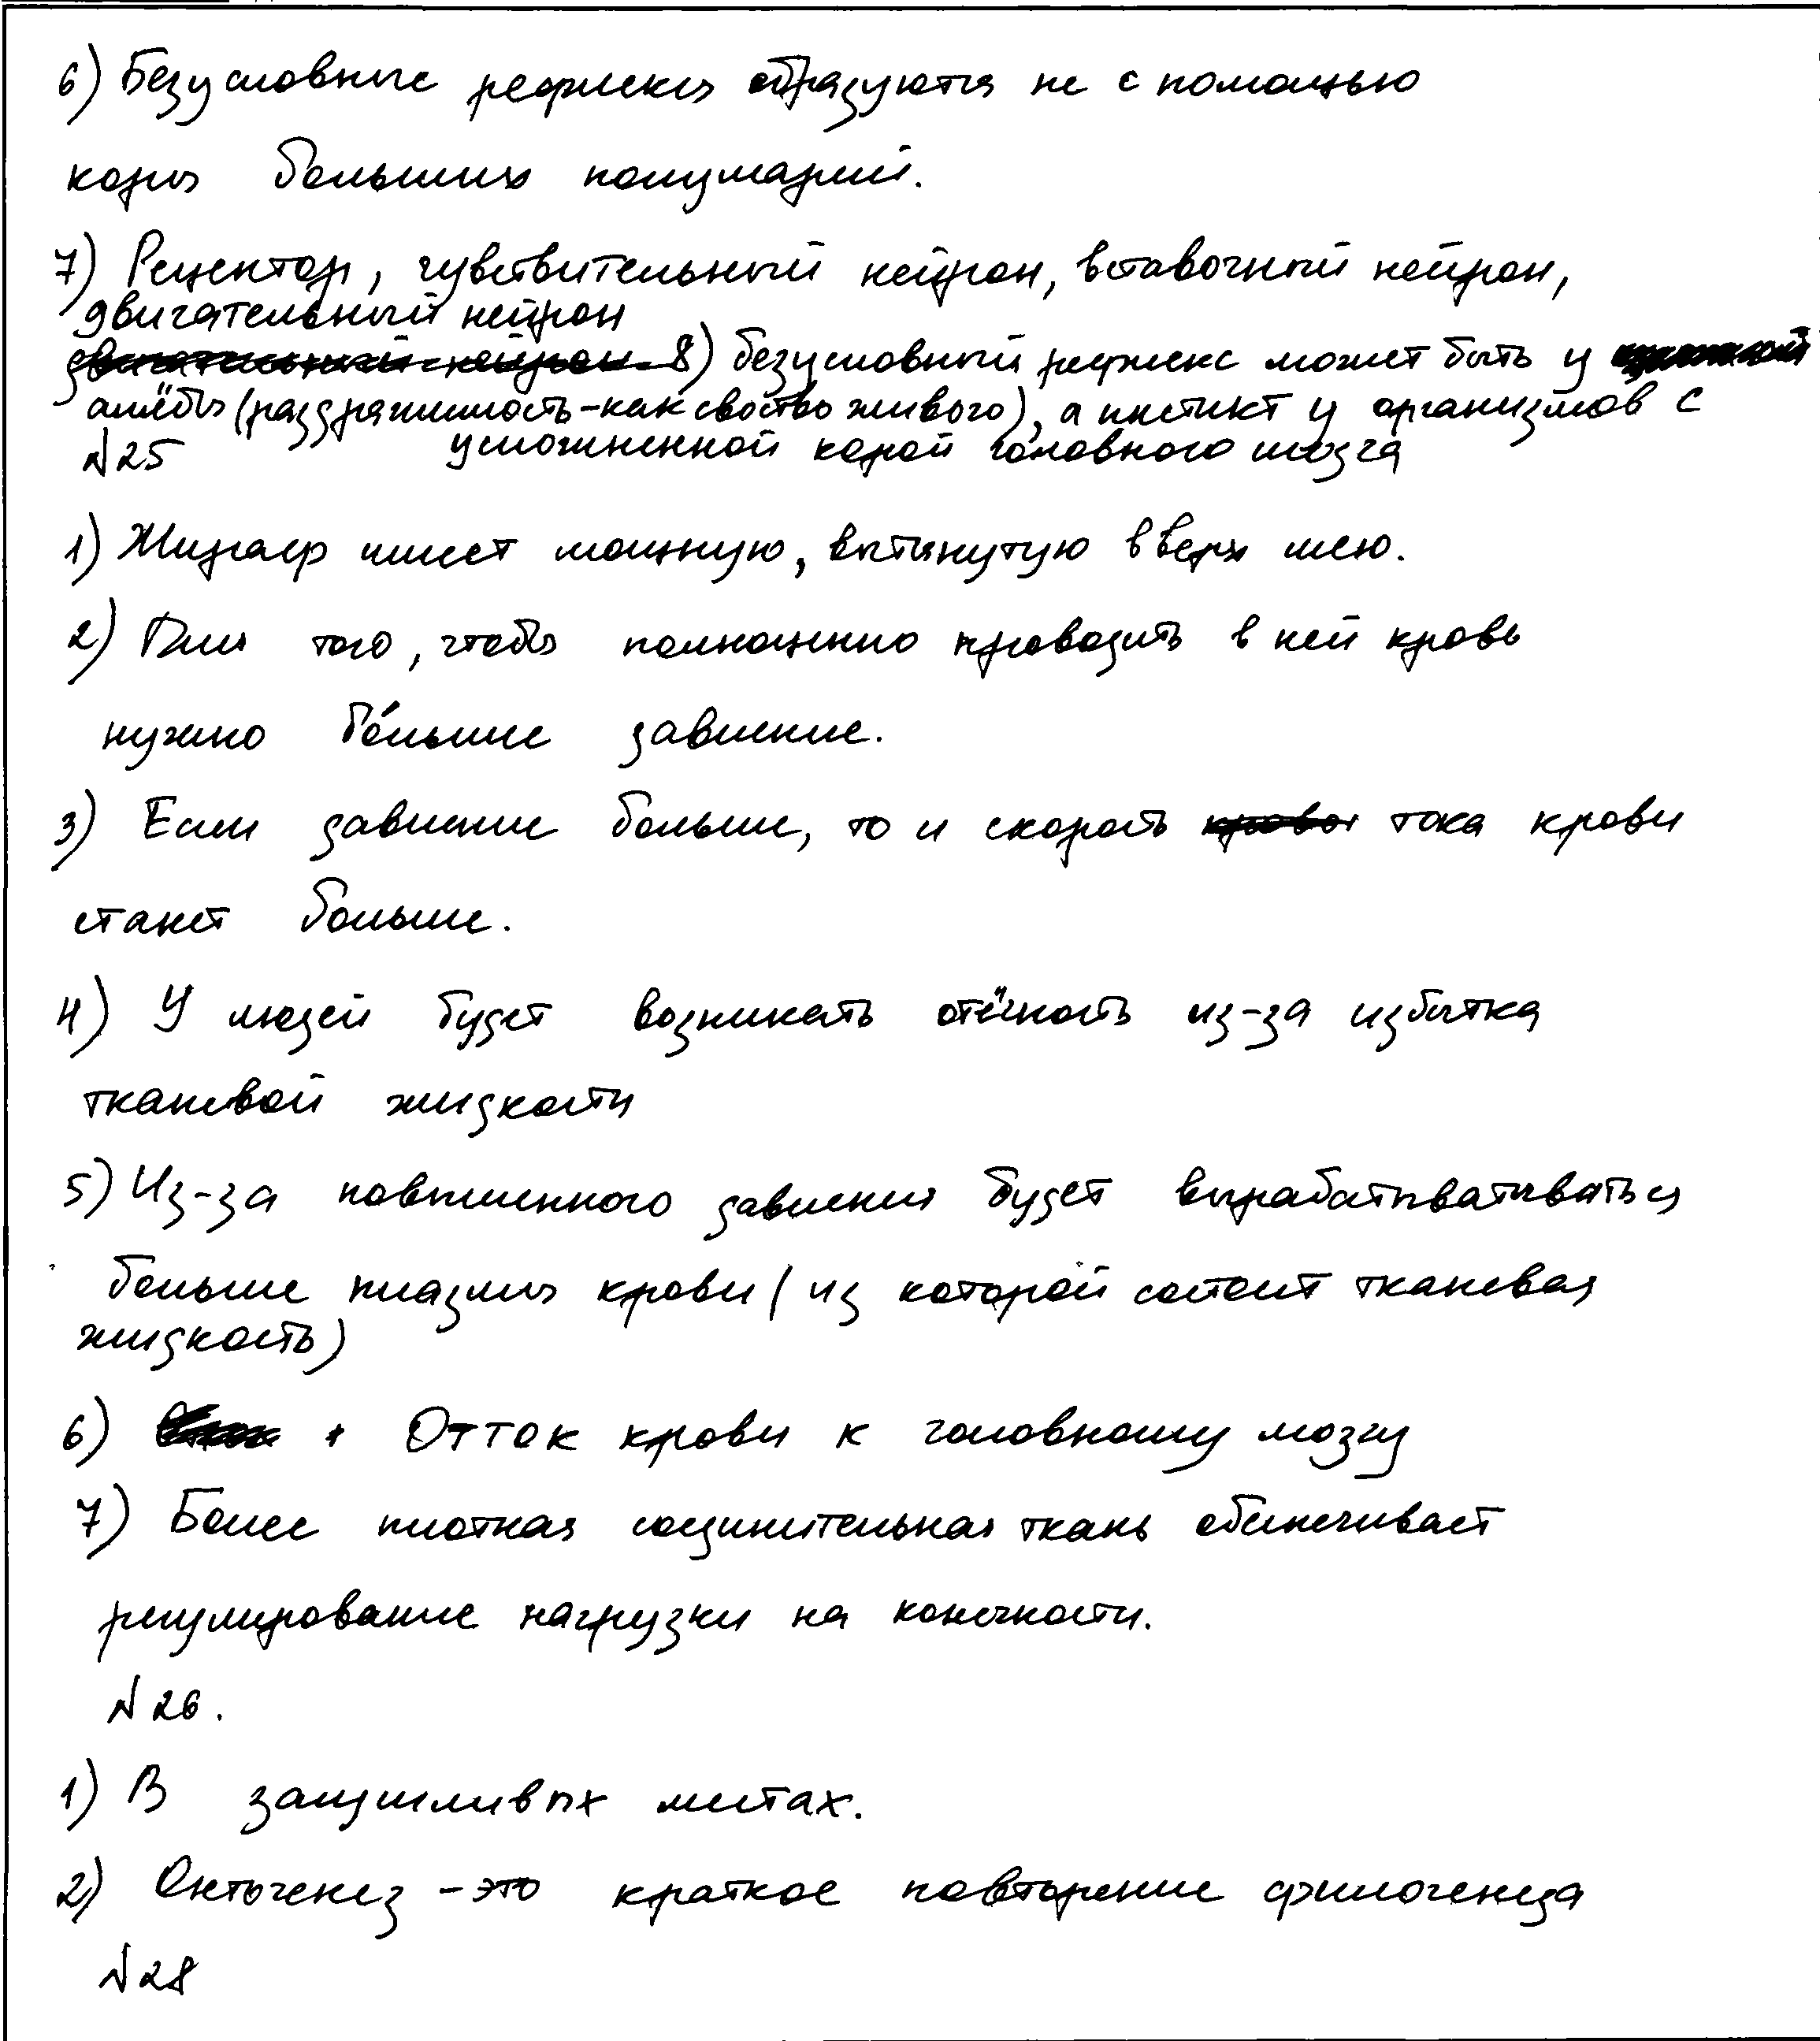 6) Безусловные рефлексы образуются не с помощью
коры больших полушарий.
7) Рецептор, чувствительный нейрон, вставочный нейрон,
двигательный нейрон
двигательный нейрон 8) безусловный рефлекс может быть у
амёбы (раздражимость-как своство живого), а инстикт у организмов с
усложненной корой головного мозга
№25
1) Жираф имеет мощную, вытянутую вверх шею.
2) Для того, чтобы полноценно проводить в ней кровь
нужно бо́льшие давление.
3) Если давление больше, то и скорость тока крови
станет больше.
4) У людей будет возникать отёчность из-за избытка
тканевой жидкости
5) Из-за повышенного давления будет вырабатыватываться
больше плазмы крови (из которой состоит тканевая
жидкость)
6) Отток крови к головному мозгу
7) Более плотная соединительная ткань обеспечивает
регулирование нагрузки на конечности.
№26.
1) В засушливых местах.
2) Онтогенез - это краткое повторение филогенеза
№28